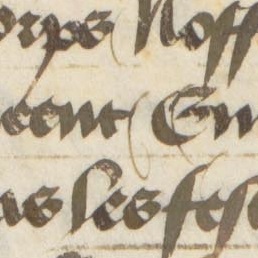 orps Noss
cent En
as les fes